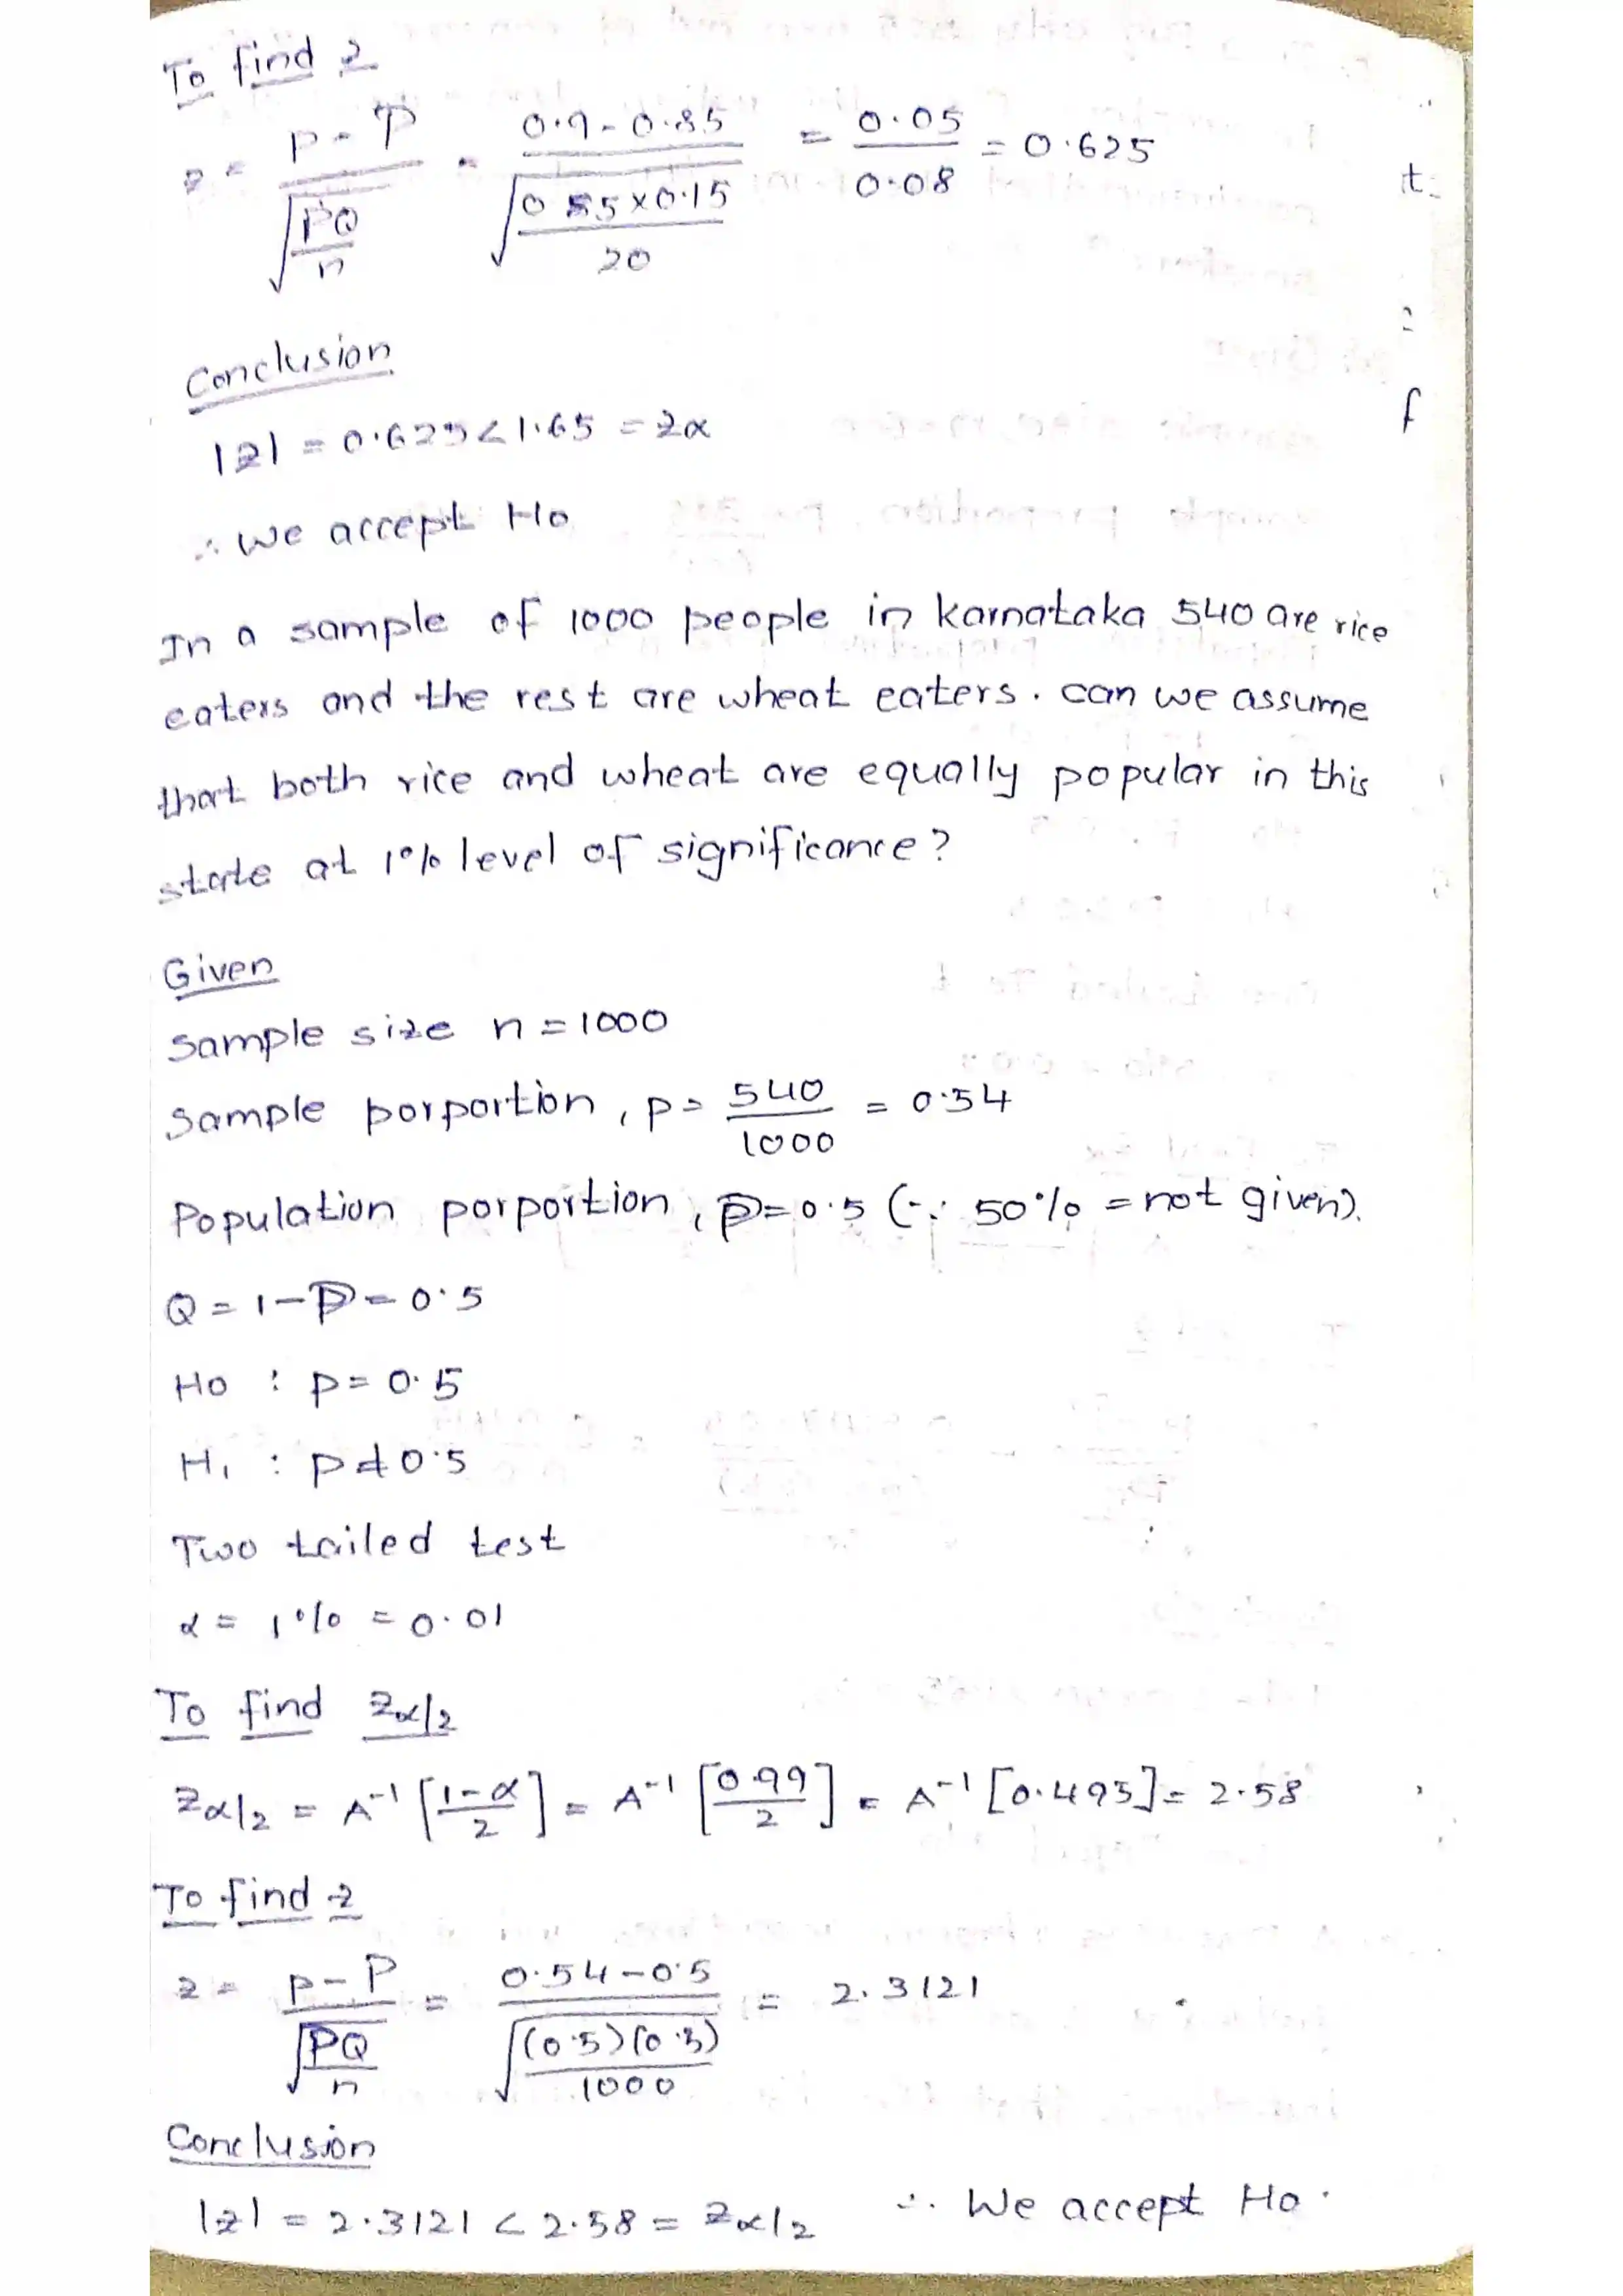 To find z
z = p - P / √(PQ/n) = 0.9 - 0.85 / √(0.85 x 0.15 / 20) = 0.05 / 0.08 = 0.625
t=
=
Conclusion
f
|z| = 0.625 < 1.65 = zα
∴ We accept Ho
In a sample of 1000 people in karnataka 540 are rice
eaters and the rest are wheat eaters. can we assume
that both rice and wheat are equally popular in this
state at 1% level of significance?
Given
Sample size n = 1000
Sample porportion, p = 540 / 1000 = 0.54
Population porportion, P = 0.5 (∵ 50% = not given).
Q = 1 - P = 0.5
Ho : p = 0.5
H1 : p ≠ 0.5
Two tailed test
α = 1% = 0.01
To find zα/2
zα/2 = A⁻¹ [1-α / 2] = A⁻¹ [0.99 / 2] = A⁻¹ [0.495] = 2.58
To find z
z = p - P / √(PQ/n) = 0.54 - 0.5 / √((0.5)(0.3) / 1000) = 2.3121
Conclusion
|z| = 2.3121 < 2.58 = zα/2 ∴ We accept Ho.